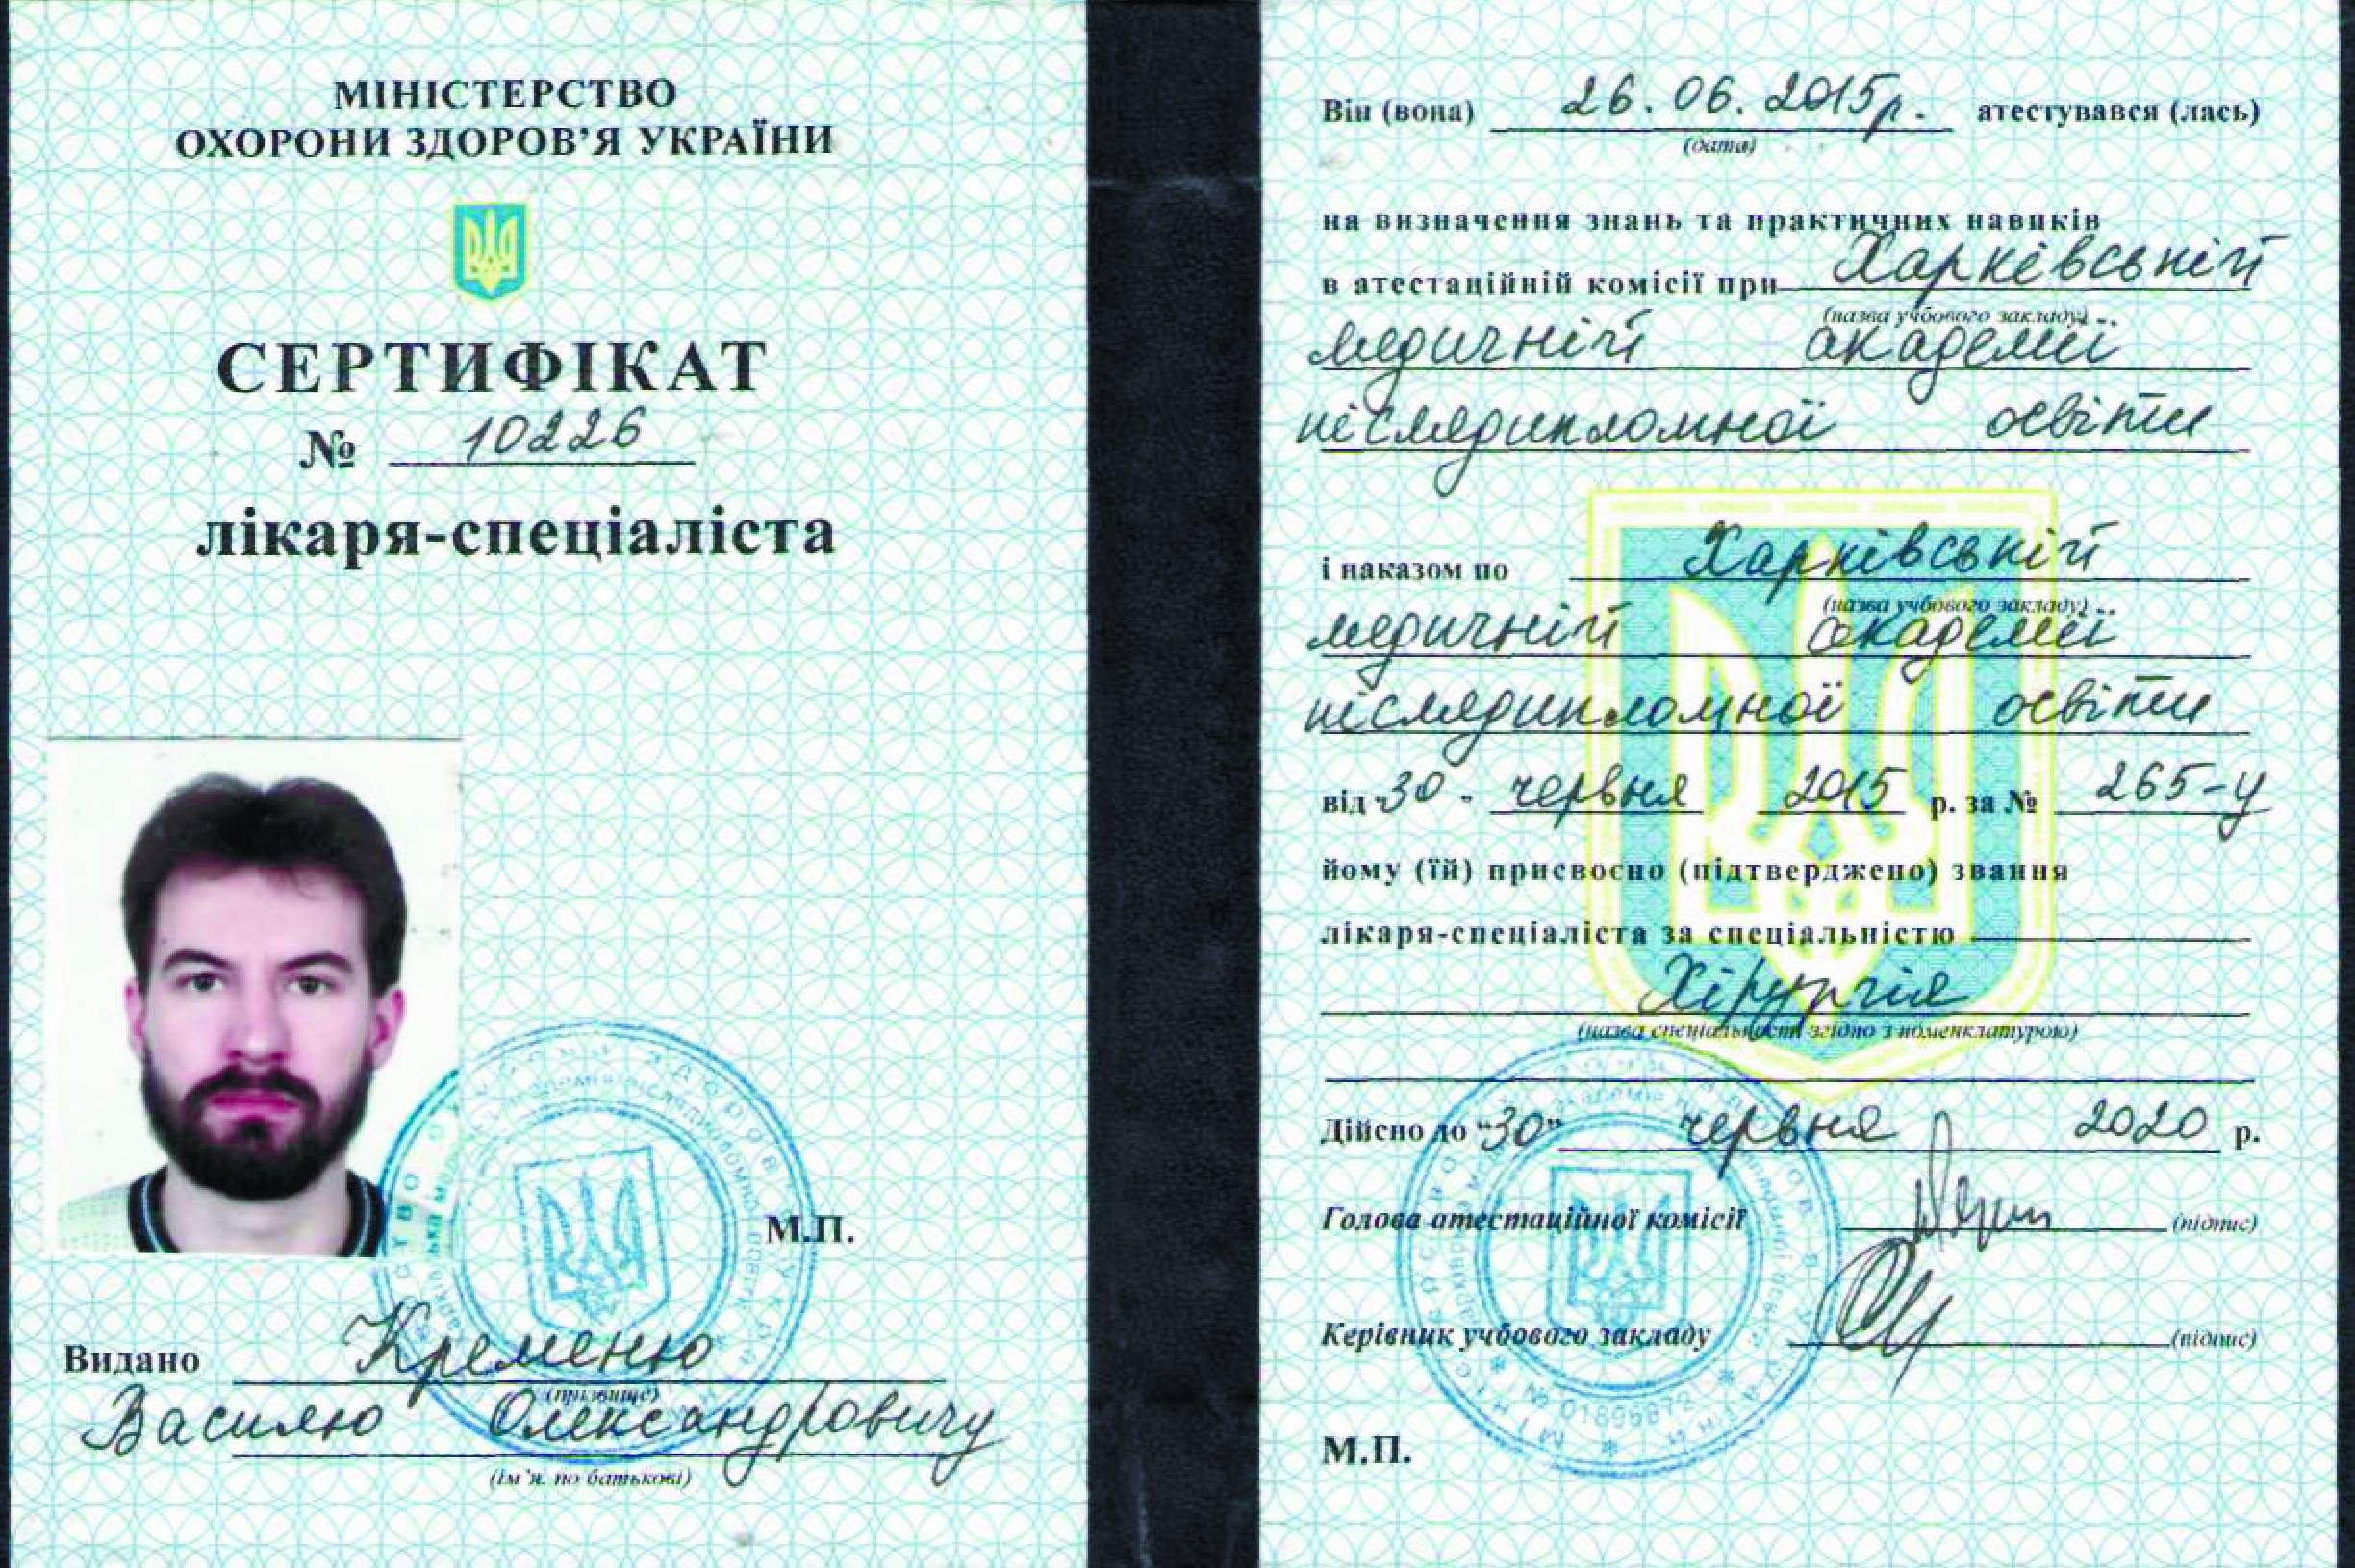 МІНІСТЕРСТВО
ОХОРОНИ ЗДОРОВ’Я УКРАЇНИ
СЕРТИФІКАТ
№ 10226
лікаря-спеціаліста
М.П.
Видано Кременю
(прізвище)
Василю Олександровичу
(ім’я, по батькові)
Він (вона) 26.06.2015р. атестувався (лась)
(дата)
на визначення знань та практичних навиків
в атестаційній комісії при Харківській
(назва учбового закладу)
медичній академії
післядипломної освіти
і наказом по Харківській
(назва учбового закладу)
медичній академії
післядипломної освіти
від "30" червня 2015 р. за № 265-у
йому (їй) присвоєно (підтверджено) звання
лікаря-спеціаліста за спеціальністю
Хірургія
(назва спеціальності згідно з номенклатурою)
Дійсно до “30” червня 2020 р.
Голова атестаційної комісії (підпис)
Керівник учбового закладу (підпис)
М.П.